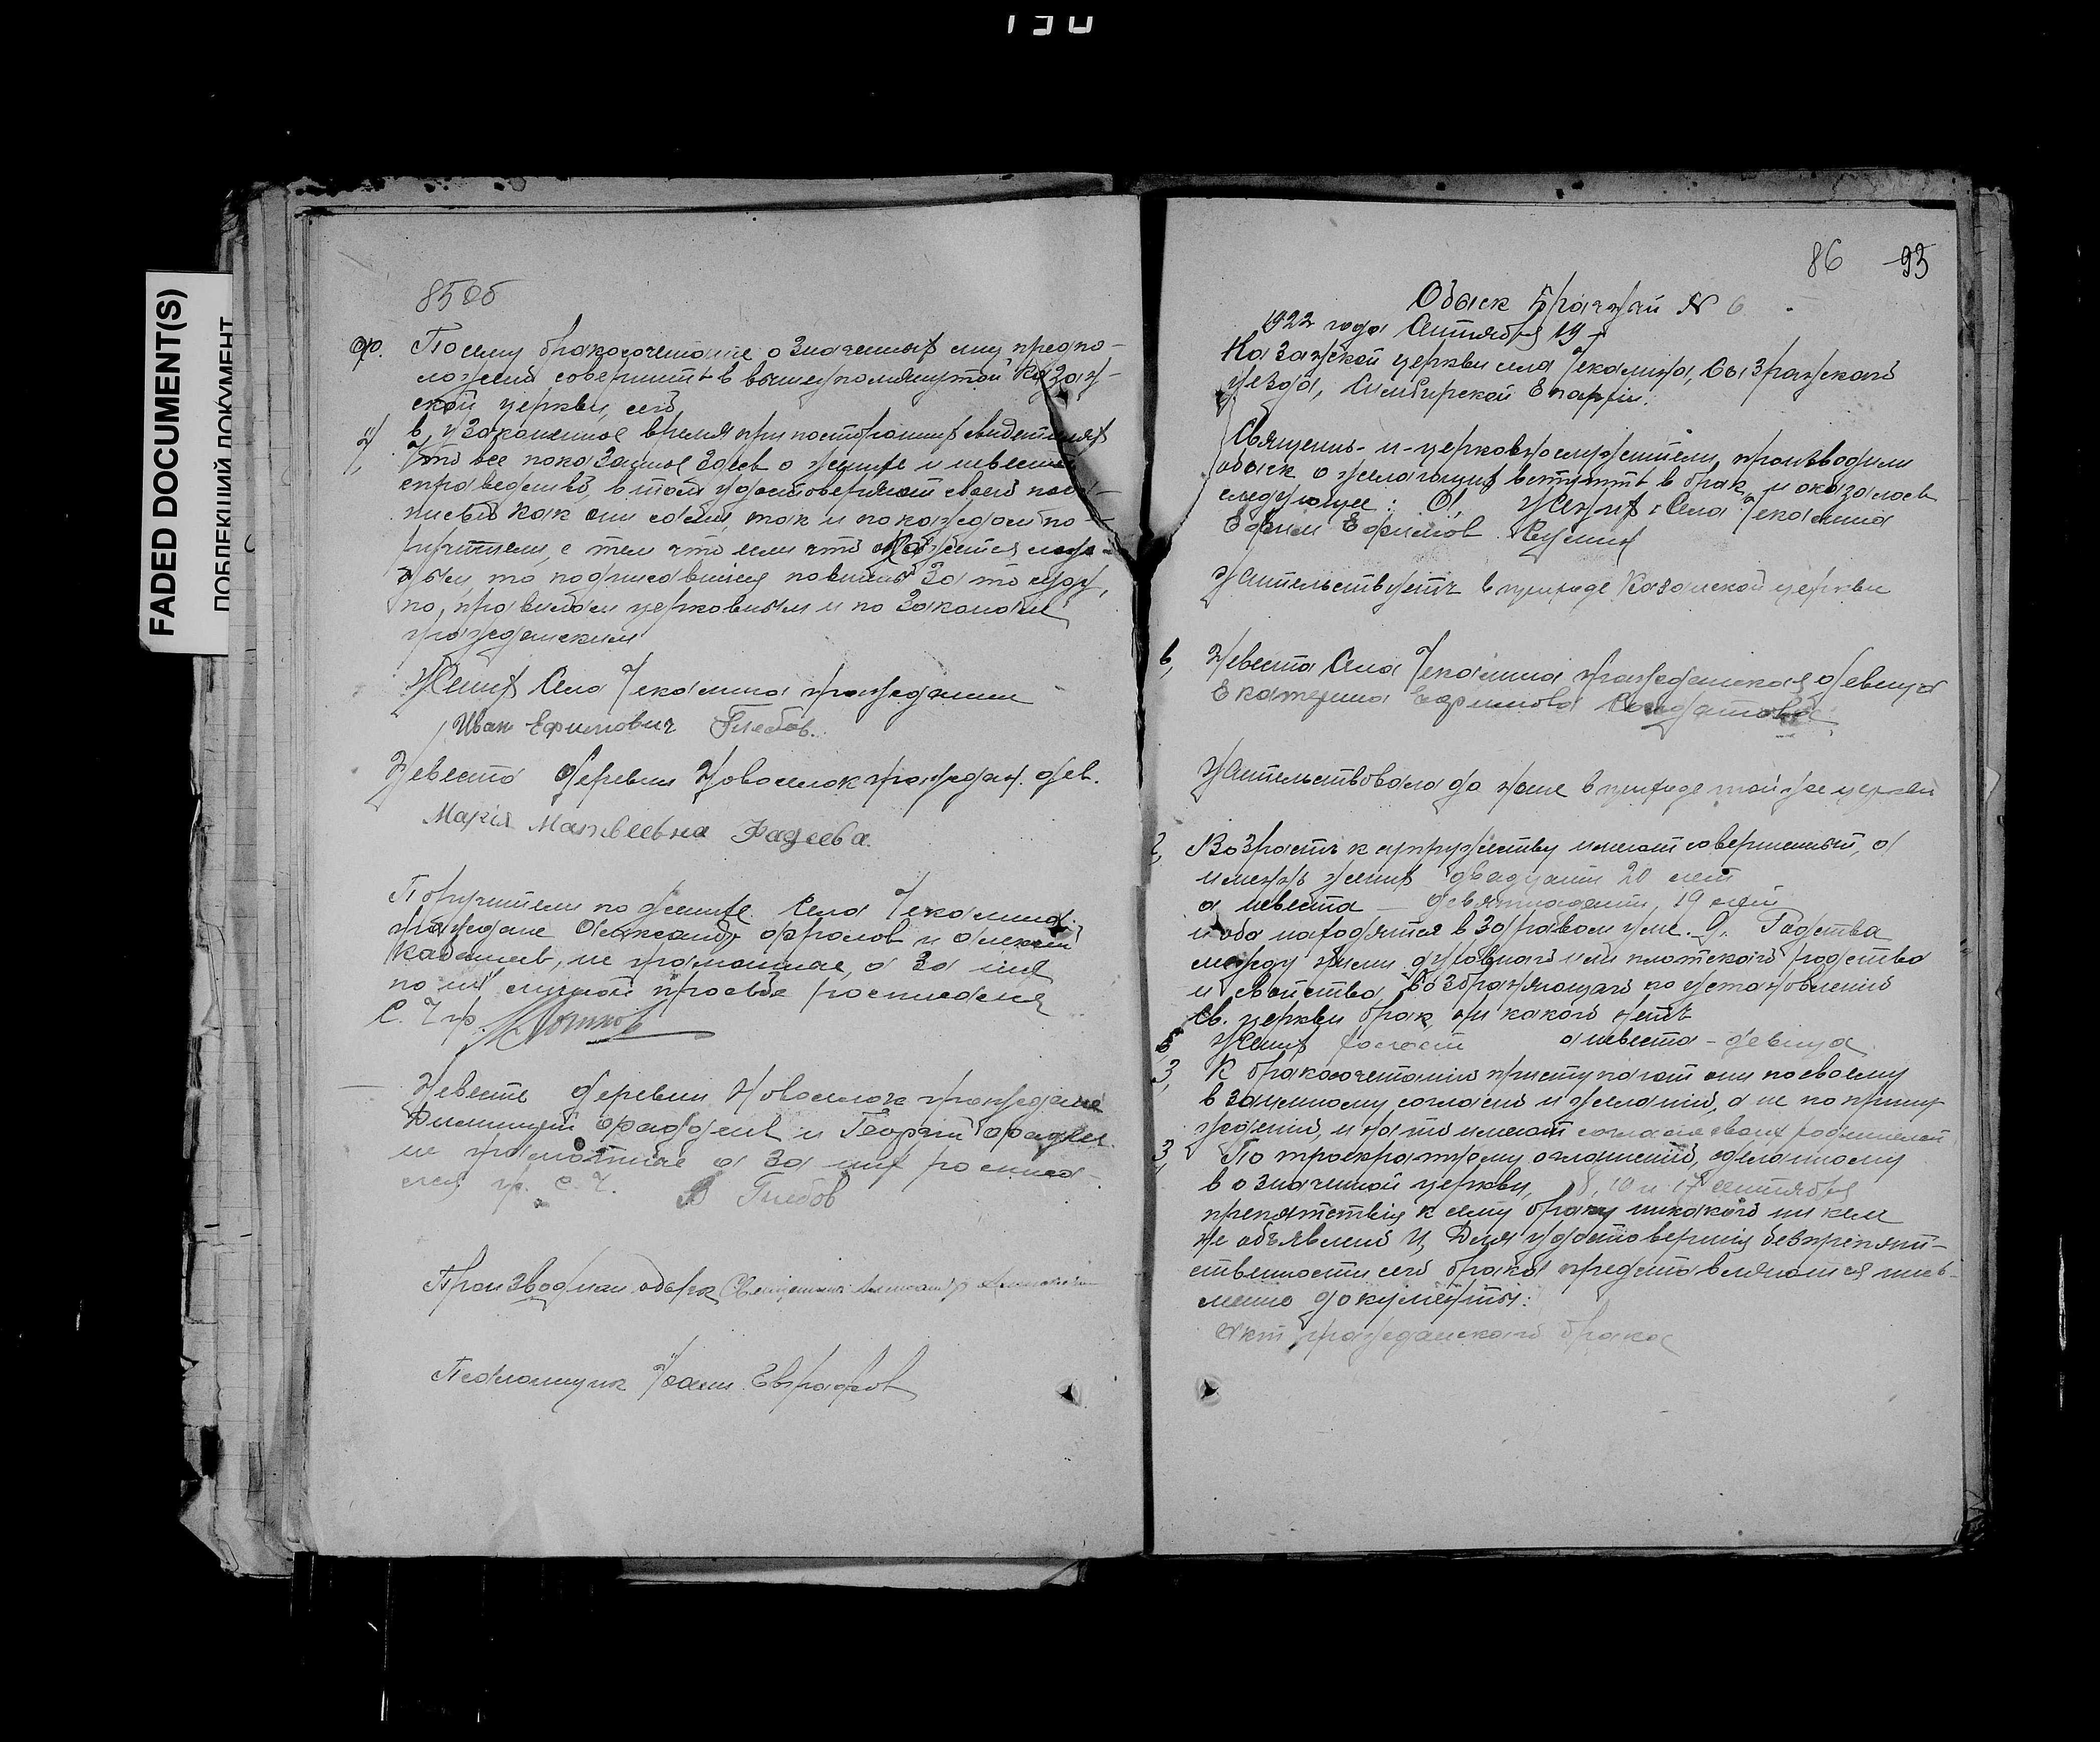 130
FADED DOCUMENT(S)
ПОБЛЕКШИЙ ДОКУМЕНТ
85 об
Посему бракосочетание означенных лиц предпо-
ложено совершить в вышеупомянутой Казан-
ской церкви, сего
в узаконенное время при посторонних свидетелях
Что все показанное здесь о женихе и невесте
справедливо, в том удостоверяют своею под-
писью как они сами, так и по каждом по-
ручители, с тем что если что окажется
то подписавшиеся повинны за то суду,
по правилам церковным и по законам
гражданским
Жених Села Чекалина гражданин
Иван Ефимович Глебов.
Невеста деревни Новоселок граждан. дев.
Марія Матвеевна Фадеева.
Поручители по женихе Села Чекалина
граждане Александр Фролов и Алексей
не грамотные, а за них
по их личной просьбе росписался
С. Ч. гр.
Невесте деревни Новоселок граждане
Димитрий Фаддеев и Георгий Фаддеев
не грамотные а за них росписа-
лся гр. С. Ч. Глебов
Производили обыск Священник
Псаломщик Іоанн Евграфов
86 93
Обыск Брачный № 6
1922 года Сентября 19 г
Казанской церкви села Чекалина, Сызранскаго
уезда, Симбирской Епархіи.
Священно-и-церковнослужители, производили
обыск о желающих вступить в брак, и оказалось
следующее: а, Жених: Села Чекалина
Ефрем Ефимов
Жительствуетъ в приходе Казанской церкви
Невеста Села Чекалина гражданская девица
Екатерина Ефимова Солдатова
Жительствовала до ныне в приходе той же церкви
Возрастъ к супружеству имеют совершенный, а
именнъ жених двадцати 20 лет
а невеста – девятнадцати, 19 лет
и оба находятся в здравом уме. Родства
между ними духовнаго или плотскаго родства
и свойства, возбраняющаго по установленію
Св. церкви брак, ни какого нетъ
Жених холост а невеста – девица
К бракосочетанію приступают они по своему
взаимному согласію и желанію, а не по прину-
ждению, и на то имеют согласие своих родителей
По троекратному оглашению, сделанному
в означенной церкви, 8, 10 и 17 сентября
препятствія к сему браку никакого ни кем
не объявлено Для удостоверенія безпрепят-
ственности сего брака представляются пись-
менно документы:
Акт гражданскаго брака